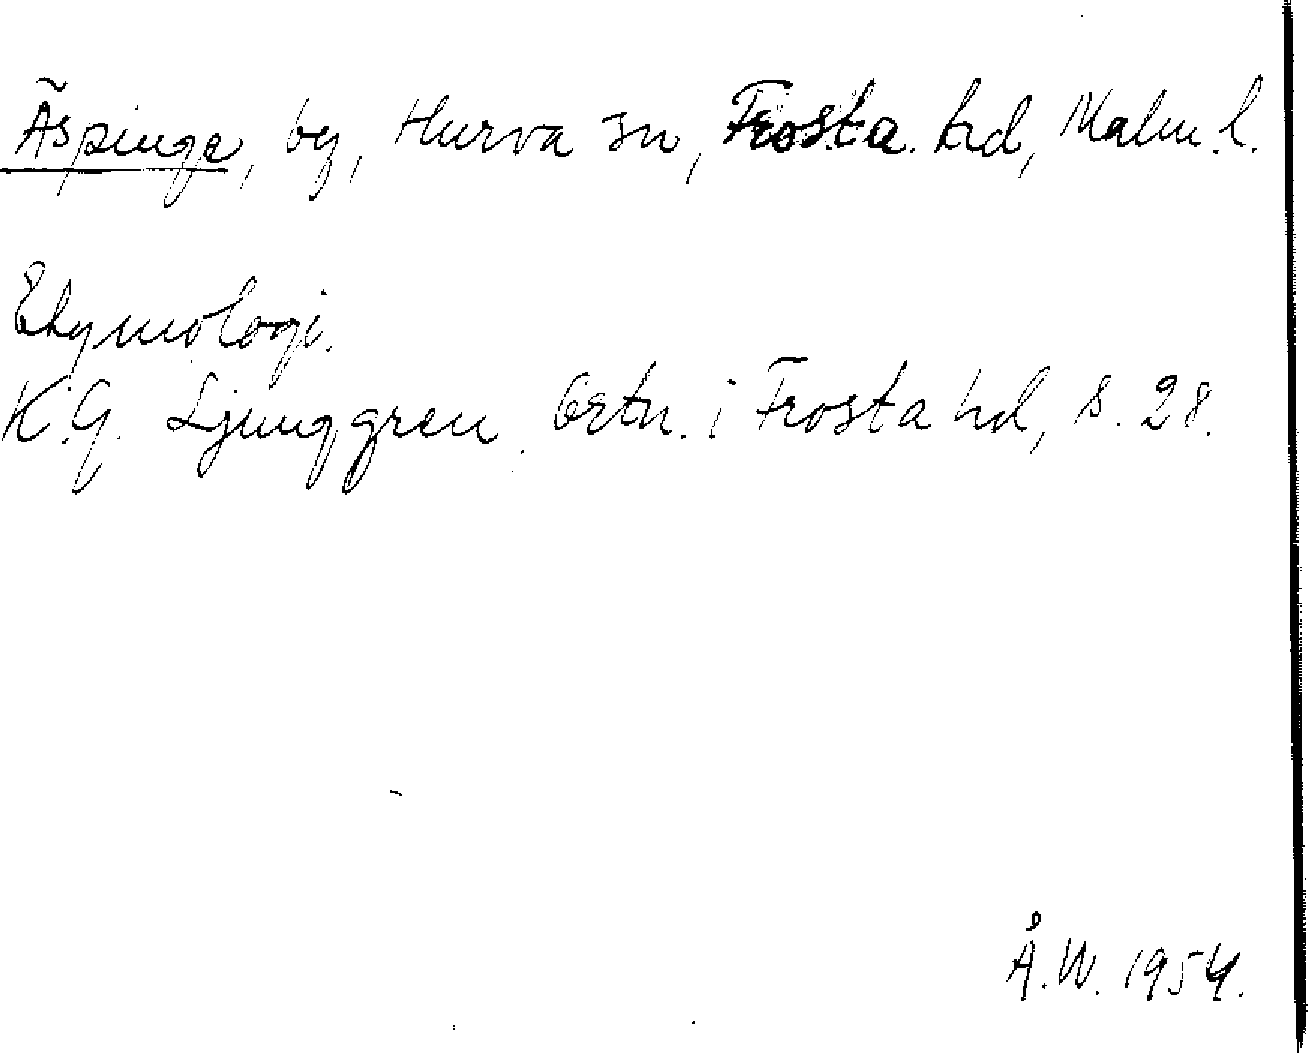 Äspinge, by, Hurva sn, Frosta hd, Malm.l.
Etymologi.
K.G. Ljunggren. Ortn. i Frosta hd, s. 28.
Å.W. 1954.